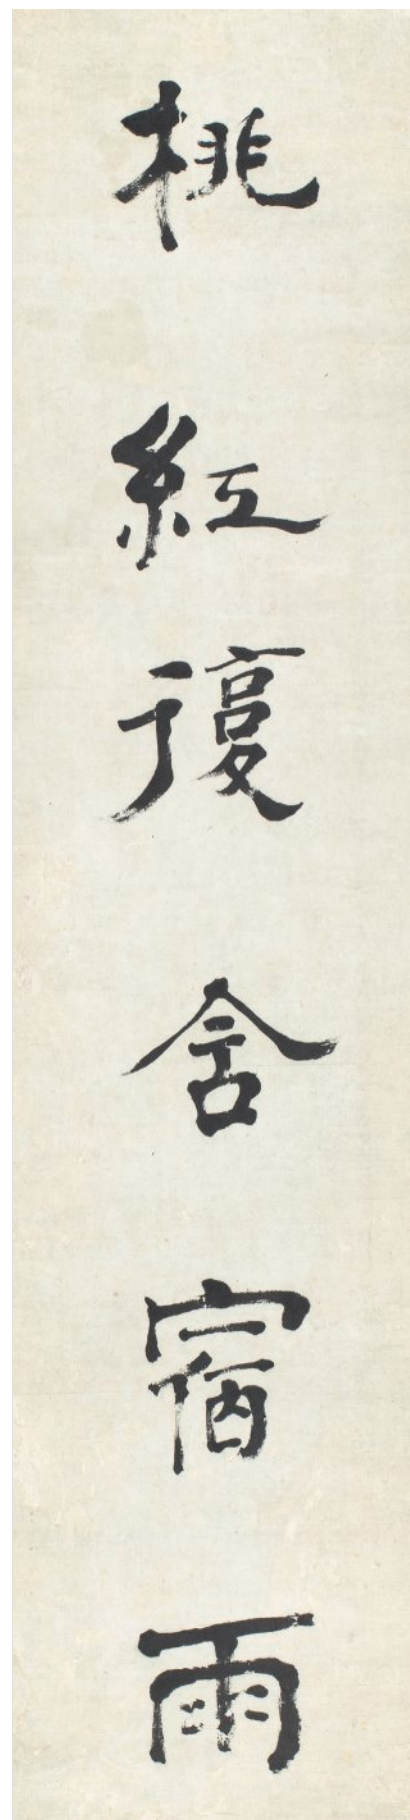 桃紅復含宿雨